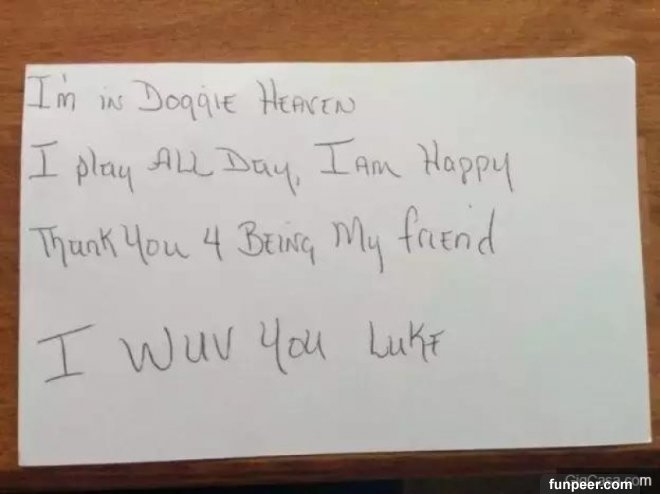 I'm in Doggie Heaven
I play All Day, I Am Happy
Thank You 4 Being My friend
I Wuv You Luke
GigCasa.com
funpeer.com